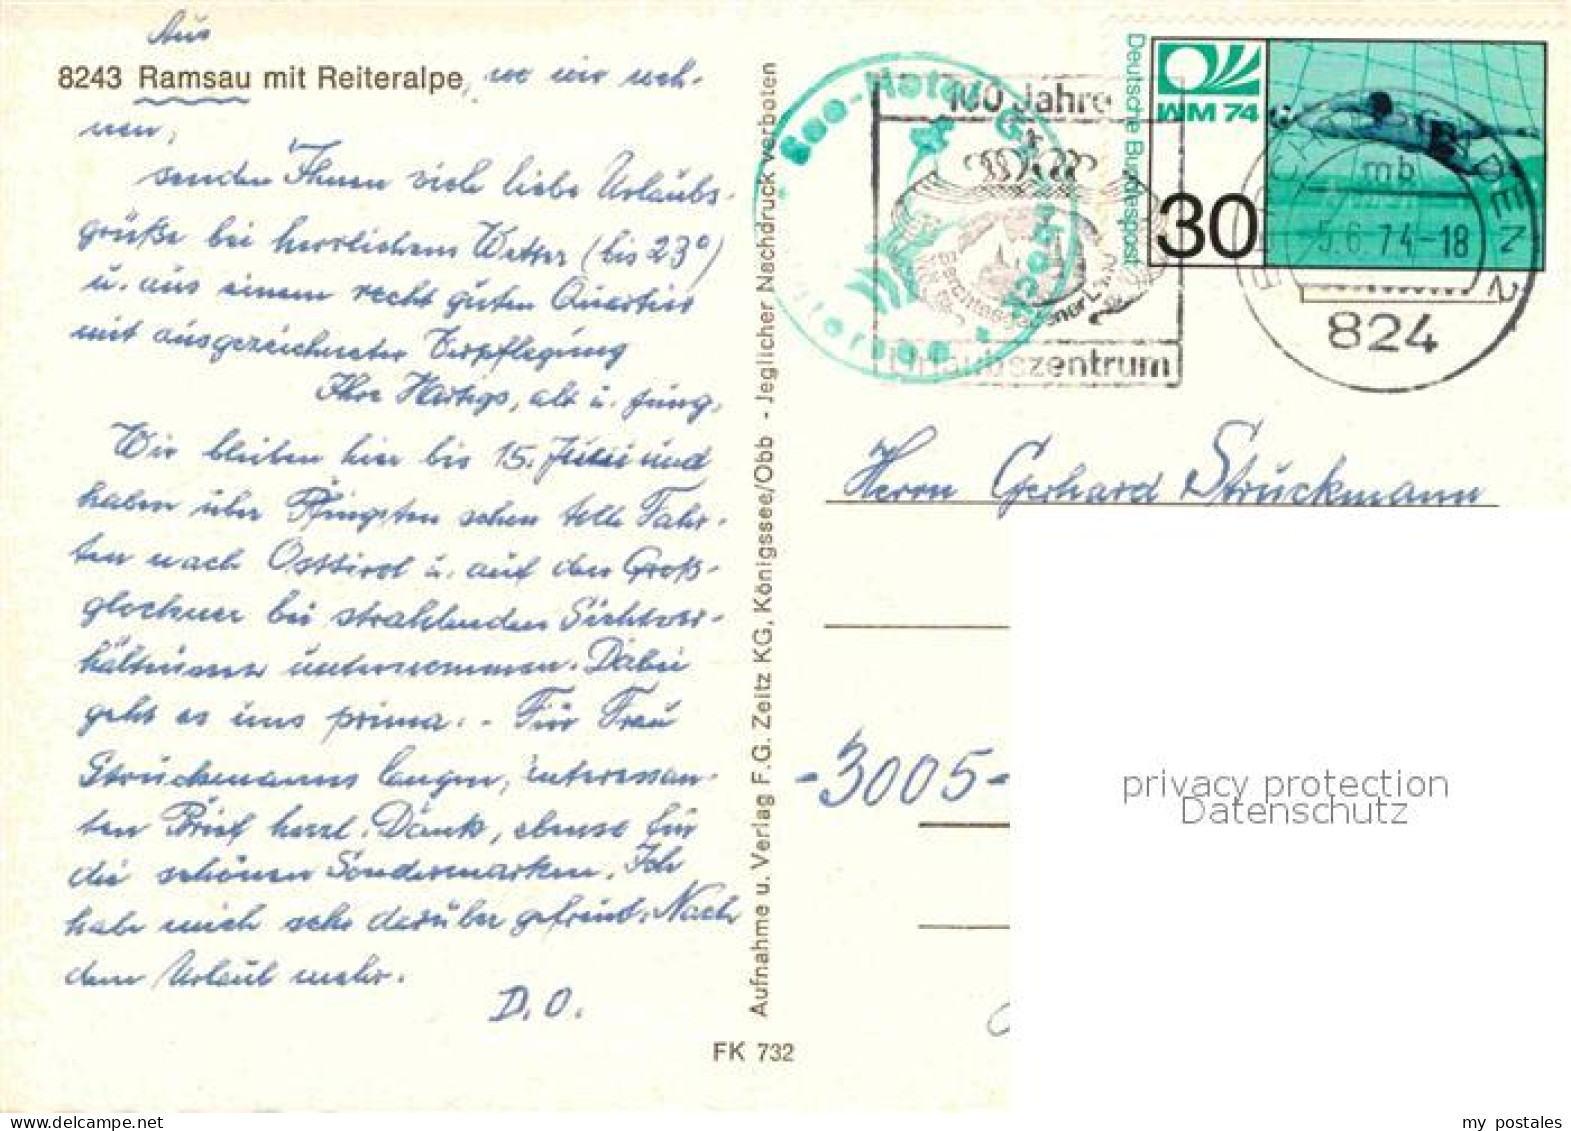 Aus
8243 Ramsau mit Reiteralpe, wo wir woh-
nen,
senden Ihnen viele liebe Urlaubs-
grüße bei herrlichem Wetter (bis 23°)
u. aus einem recht guten Quartier
mit ausgezeichneter Verpflegung
Ihre Hertigs, alt u. jung.
Wir bleiben hier bis 15. Juni und
haben über Pfingsten schon tolle Fahr-
ten nach Osttirol u. auf den Groß-
glockner bei strahlenden Sichtver-
hältnissen unternommen. Dabei
geht es uns prima. - Für Frau
Struckmanns langen, interessan-
ten Brief herzl. Dank, ebenso für
die schönen Sondermarken. Ich
habe mich sehr darüber gefreut. Nach
dem Urlaub mehr.
D. O.
Aufnahme u. Verlag F.G. Zeitz KG, Königssee/Obb - Jeglicher Nachdruck verboten
FK 732
See-Hotel
100 Jahre
Berchtesgadener Land
Urlaubszentrum
Deutsche Bundespost
WM 74
30
BERCHTESGADEN 2
mb
5.6.74-18
824
Herrn Gerhard Struckmann
-3005-
privacy protection
Datenschutz
my postales